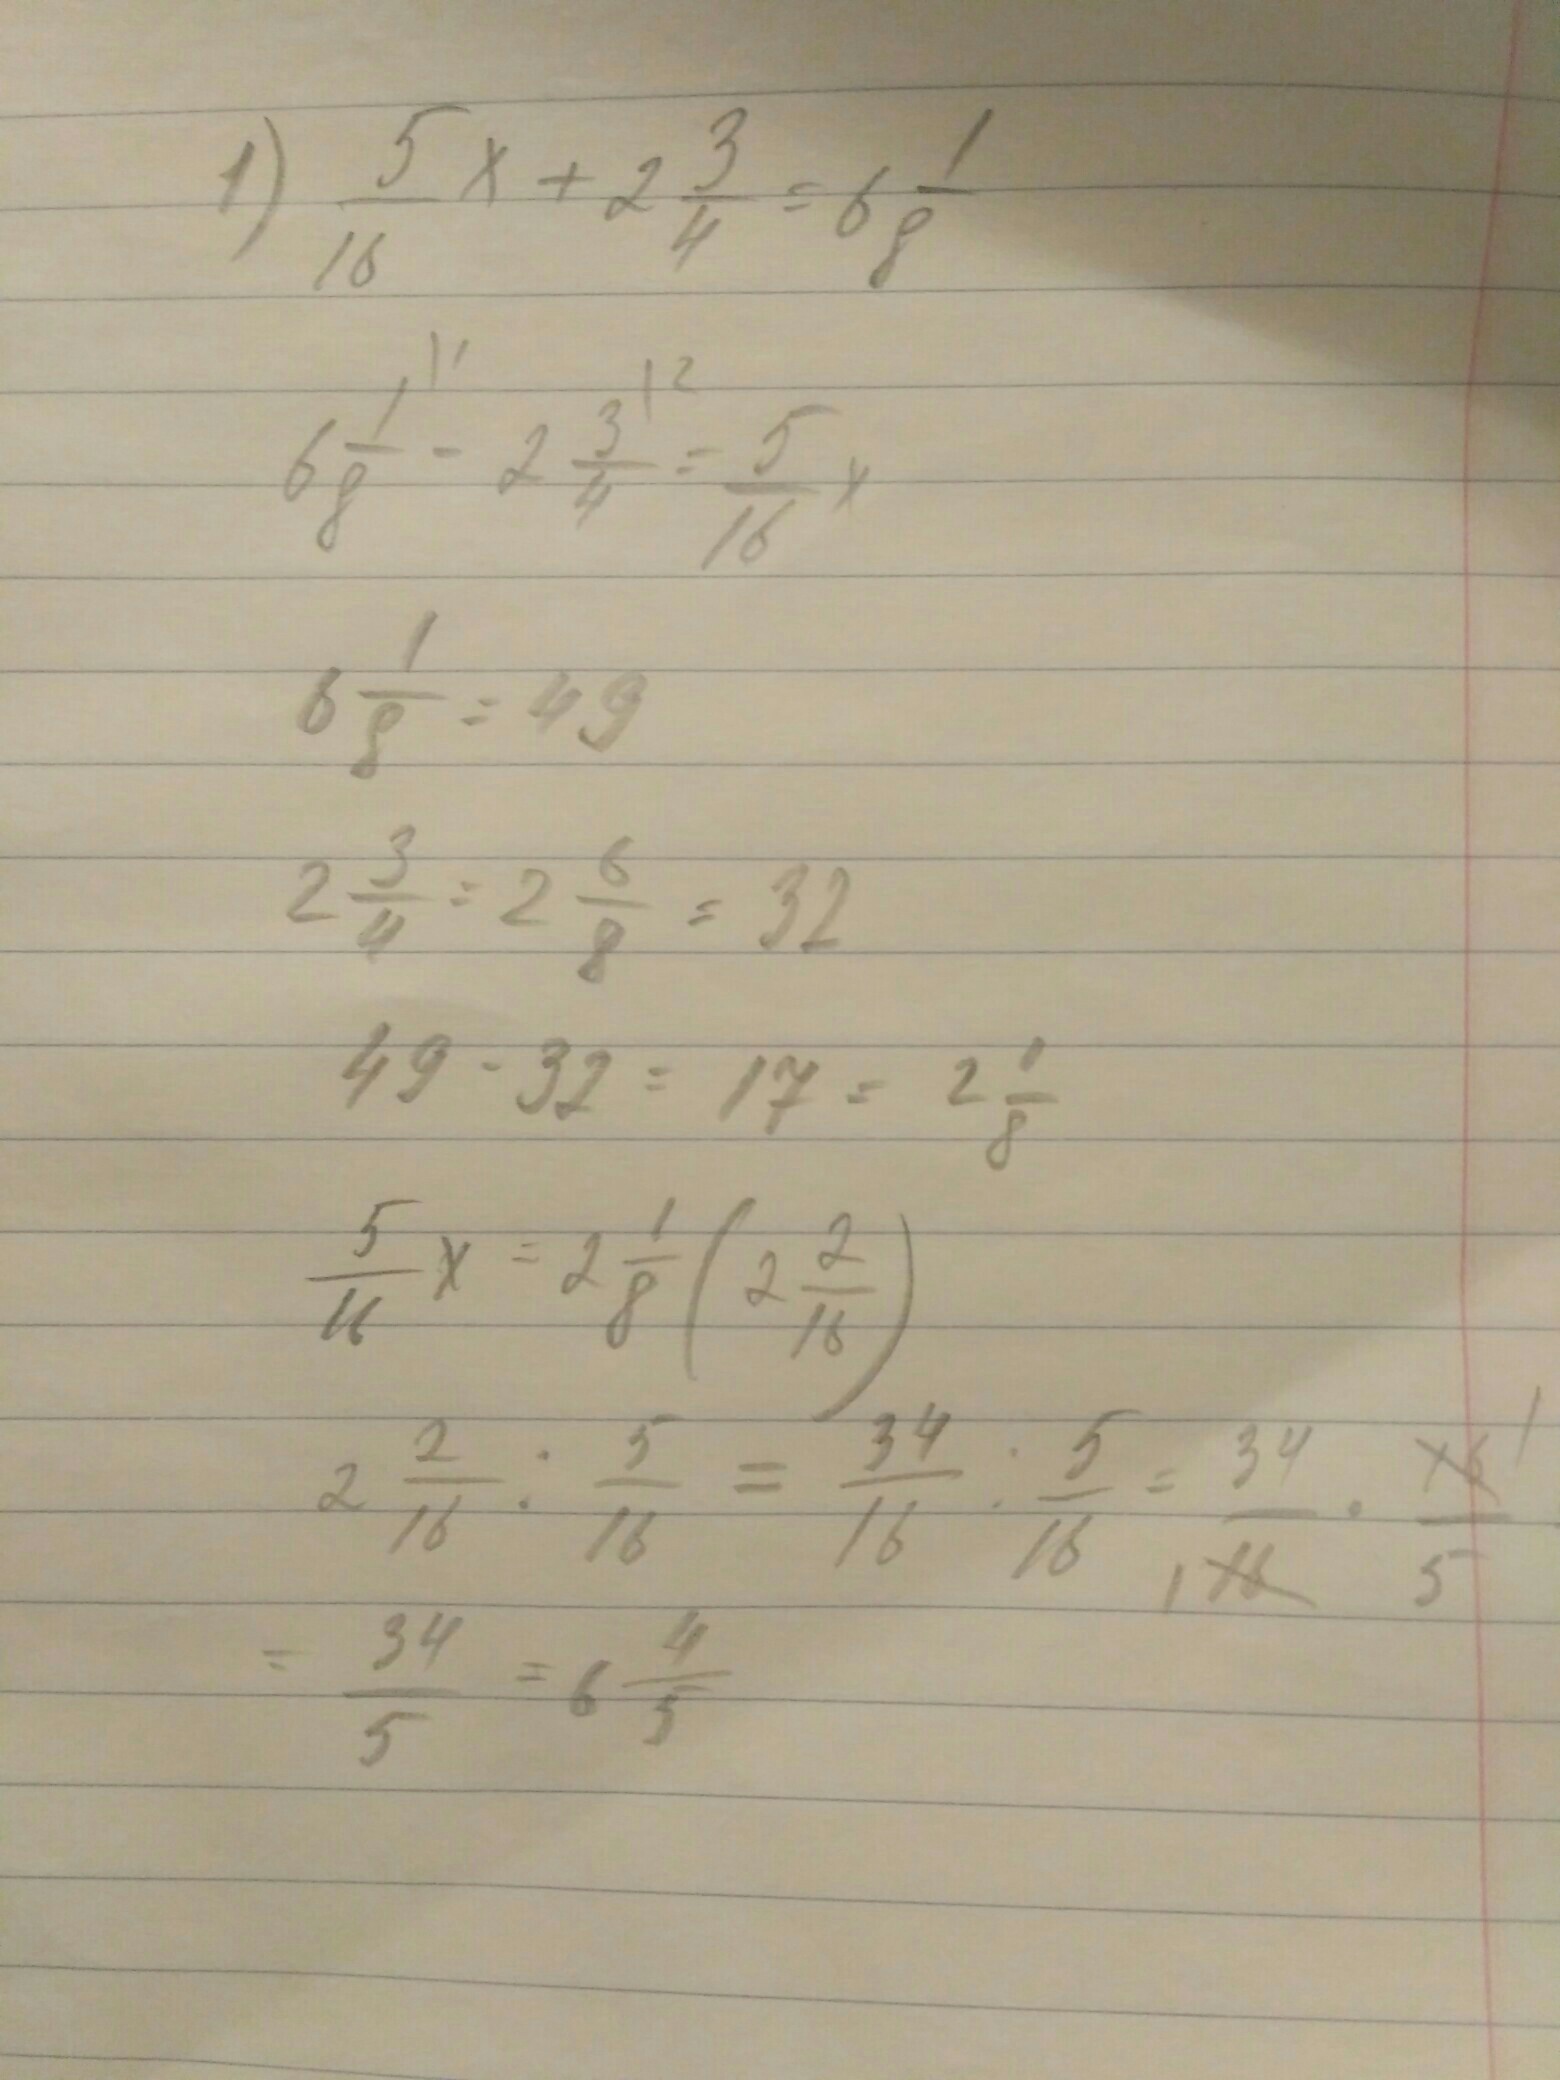 1) 5/16 x + 2 3/4 = 6 1/8
6 1/8 |1 - 2 3/4 |2 = 5/16 x
6 1/8 = 49
2 3/4 = 2 6/8 = 32
49 - 32 = 17 = 2 1/8
5/16 x = 2 1/8 (2 2/16)
2 2/16 : 5/16 = 34/16 : 5/16 = 34/16 1 · 16/5 1
= 34/5 = 6 4/5